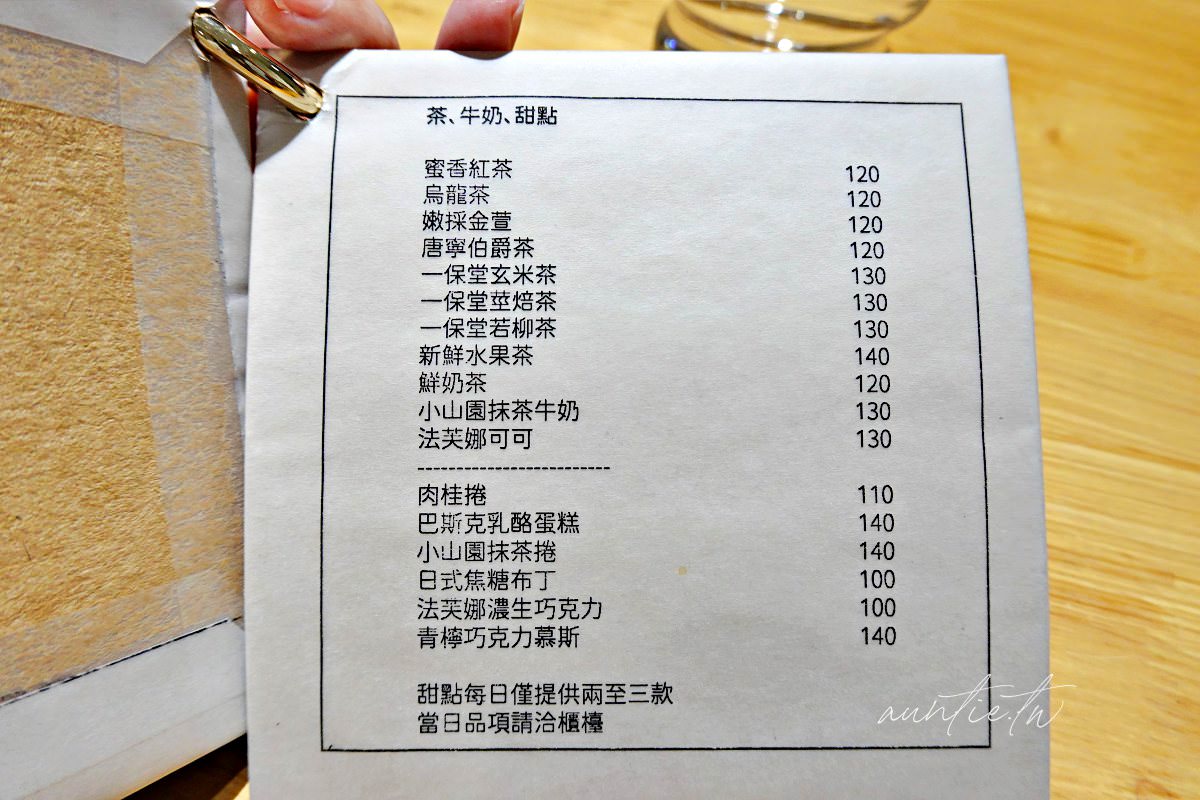 茶、牛奶、甜點
蜜香紅茶 120
烏龍茶 120
嫩採金萱 120
唐寧伯爵茶 120
一保堂玄米茶 130
一保堂莖焙茶 130
一保堂若柳茶 130
新鮮水果茶 140
鮮奶茶 120
小山園抹茶牛奶 130
法芙娜可可 130
-------------------------
肉桂捲 110
巴斯克乳酪蛋糕 140
小山園抹茶捲 140
日式焦糖布丁 100
法芙娜濃生巧克力 100
青檸巧克力慕斯 140
甜點每日僅提供兩至三款
當日品項請洽櫃檯
auntie.tw